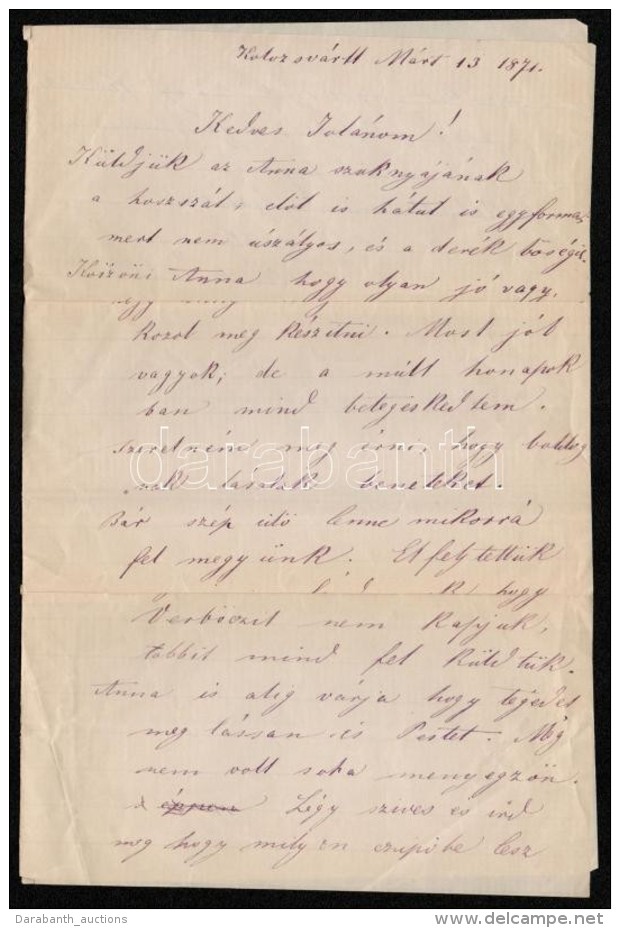 Kolozsvártt Márt 13 1871.
Kedves Jolánom!
Küldjük az Anna szoknyájának
a hoszszát, elöl is hátul is egyforma,
mert nem úszályos, és a derék bőségit.
Köszöni Anna hogy olyan jó vagy.
kozol meg készitni. Most jól
vagyok; de a múlt honapok
ban mind betegeskedtem.
szeretném meg érni, hogy boldog
nak lássalak beneteket.
Bár szép idö lenne mikorrá
fel megyünk. Elfelejtettük
hogy
Verbőczit nem kapjuk,
többit mind fel küldtük.
Anna is alig várja hogy tégedet
meg lássan is Pestet. Még
nem volt soha menyegzön.
Légy szives és ird
meg hogy milyen czipöbe lesz
darabanth
Darabanth_auctions
delcampe.net